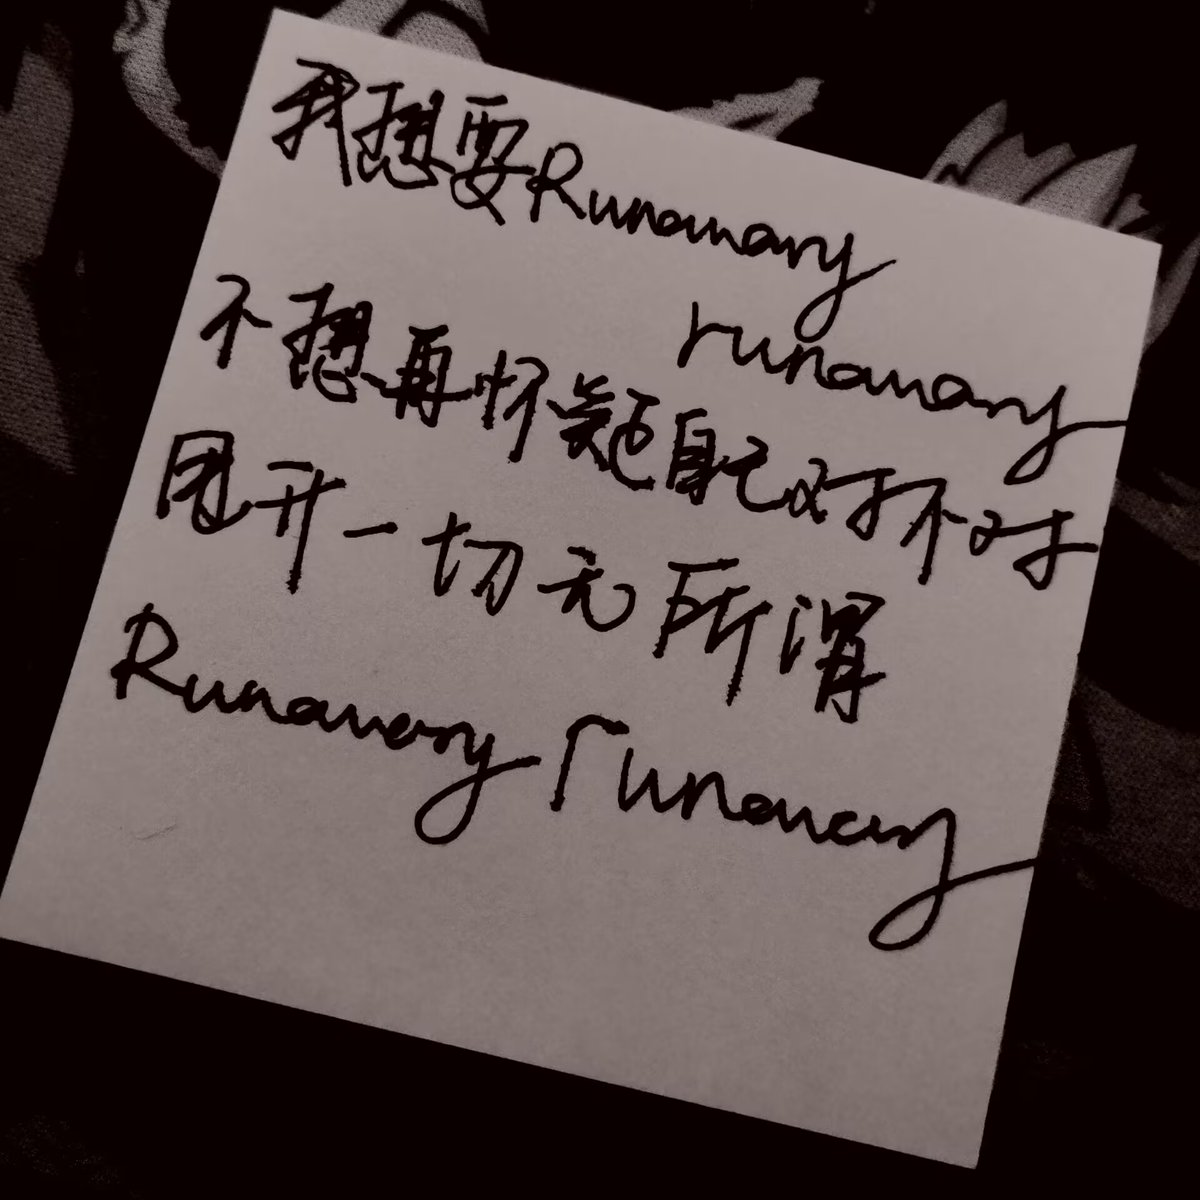 我想要Runaway
runaway
不想再怀疑自己对不对
甩开一切无所谓
Runaway runaway